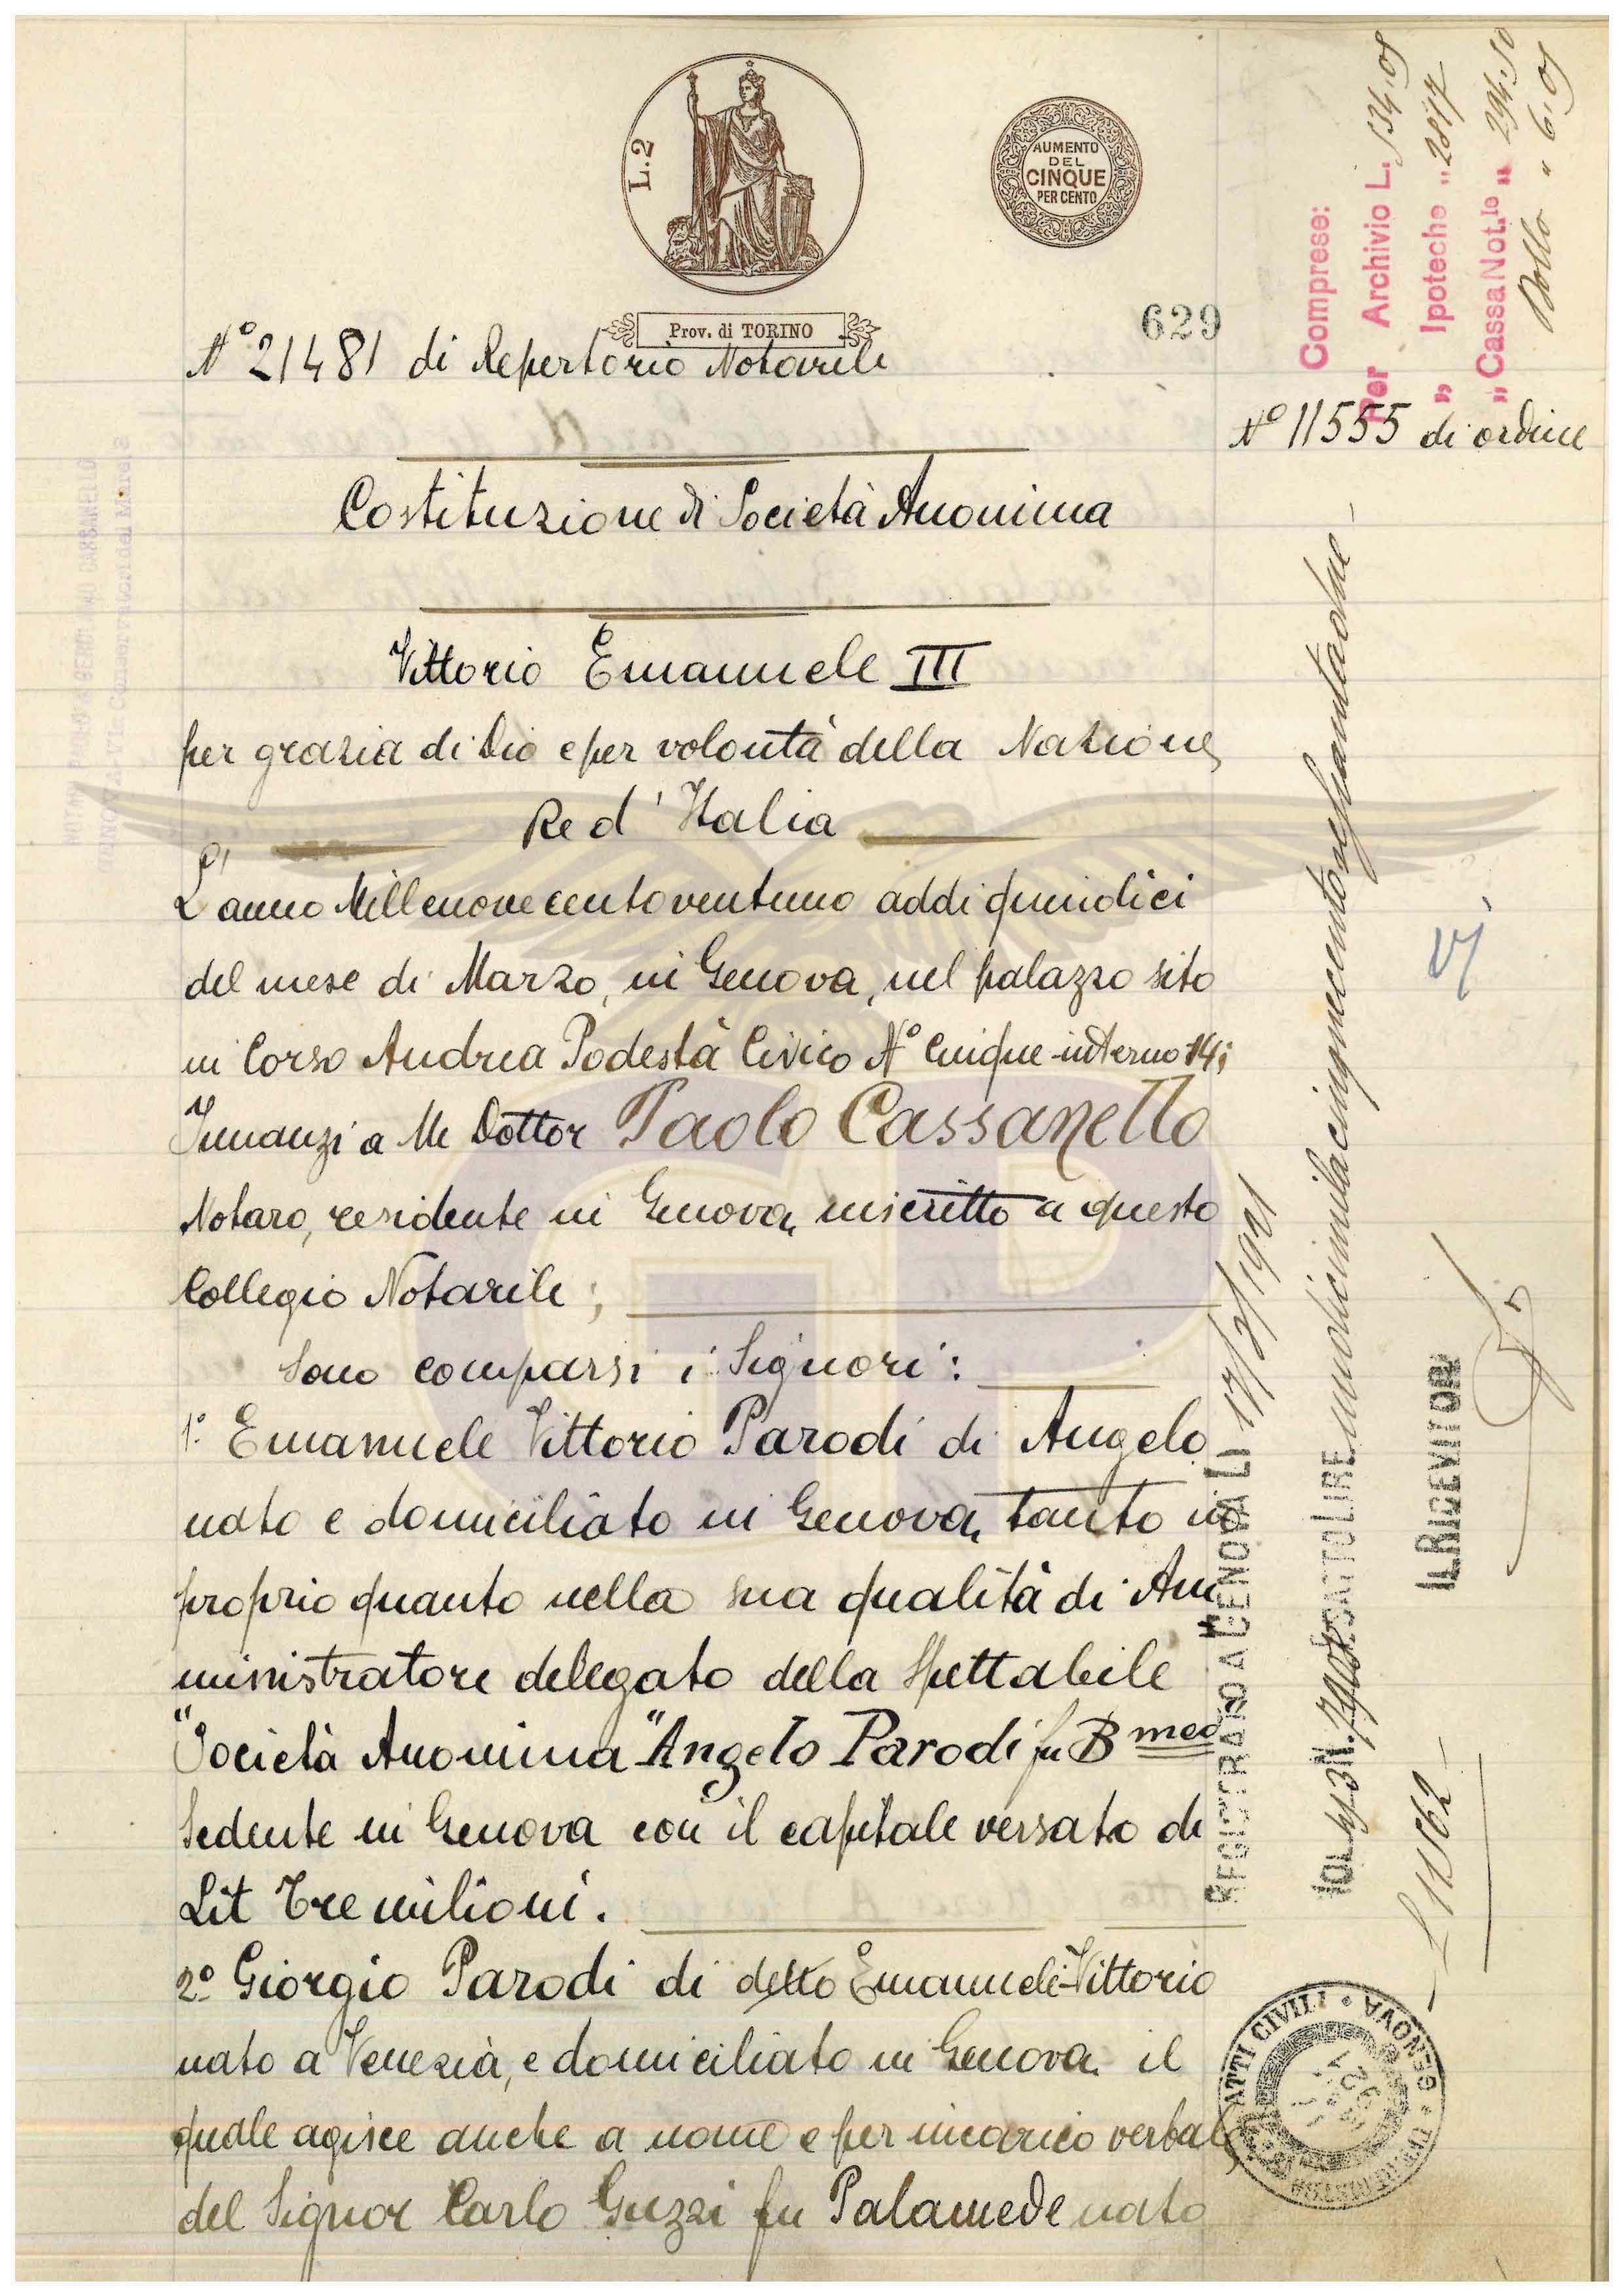 L.2
AUMENTO
DEL
CINQUE
PER CENTO
Prov. di TORINO
629
Comprese:
Per Archivio L. 134.05
" Ipoteche " 2817
" Cassa Not.le " 294.50
Bollo " 6.05
N° 21481 di Repertorio Notarile
N° 11555 di ordine
Costituzione di Società Anonima
Vittorio Emanuele III
per grazia di Dio e per volontà della Nazione
Re d'Italia
L'anno Millenovecentoventuno addi quindici
del mese di Marzo, in Genova, nel palazzo sito
in Corso Andrea Podestà Civico N° Cinque interno 14;
Innanzi a Me Dottor Paolo Cassanello
Notaro, residente in Genova, inscritto a questo
Collegio Notarile;
Sono comparsi i Signori:
1° Emanuele Vittorio Parodi di Angelo
nato e domiciliato in Genova, tanto in
proprio quanto nella sua qualità di Am
ministratore delegato della Spettabile
"Società Anonima "Angelo Parodi fu Bmeo
Sedente in Genova con il capitale versato di
Lit Tre milioni.
2° Giorgio Parodi di detto Emanuele Vittorio
nato a Venezia, e domiciliato in Genova il
quale agisce anche a nome e per incarico verbale
del Signor Carlo Guzzi fu Palamede nato
REGISTRATO A GENOVA LI 17/3/1921
ESATTO LIRE undicimilacinquecentosessantadue
IL RICEVITORE
£ 11562
ATTI CIVILI • GENOVA